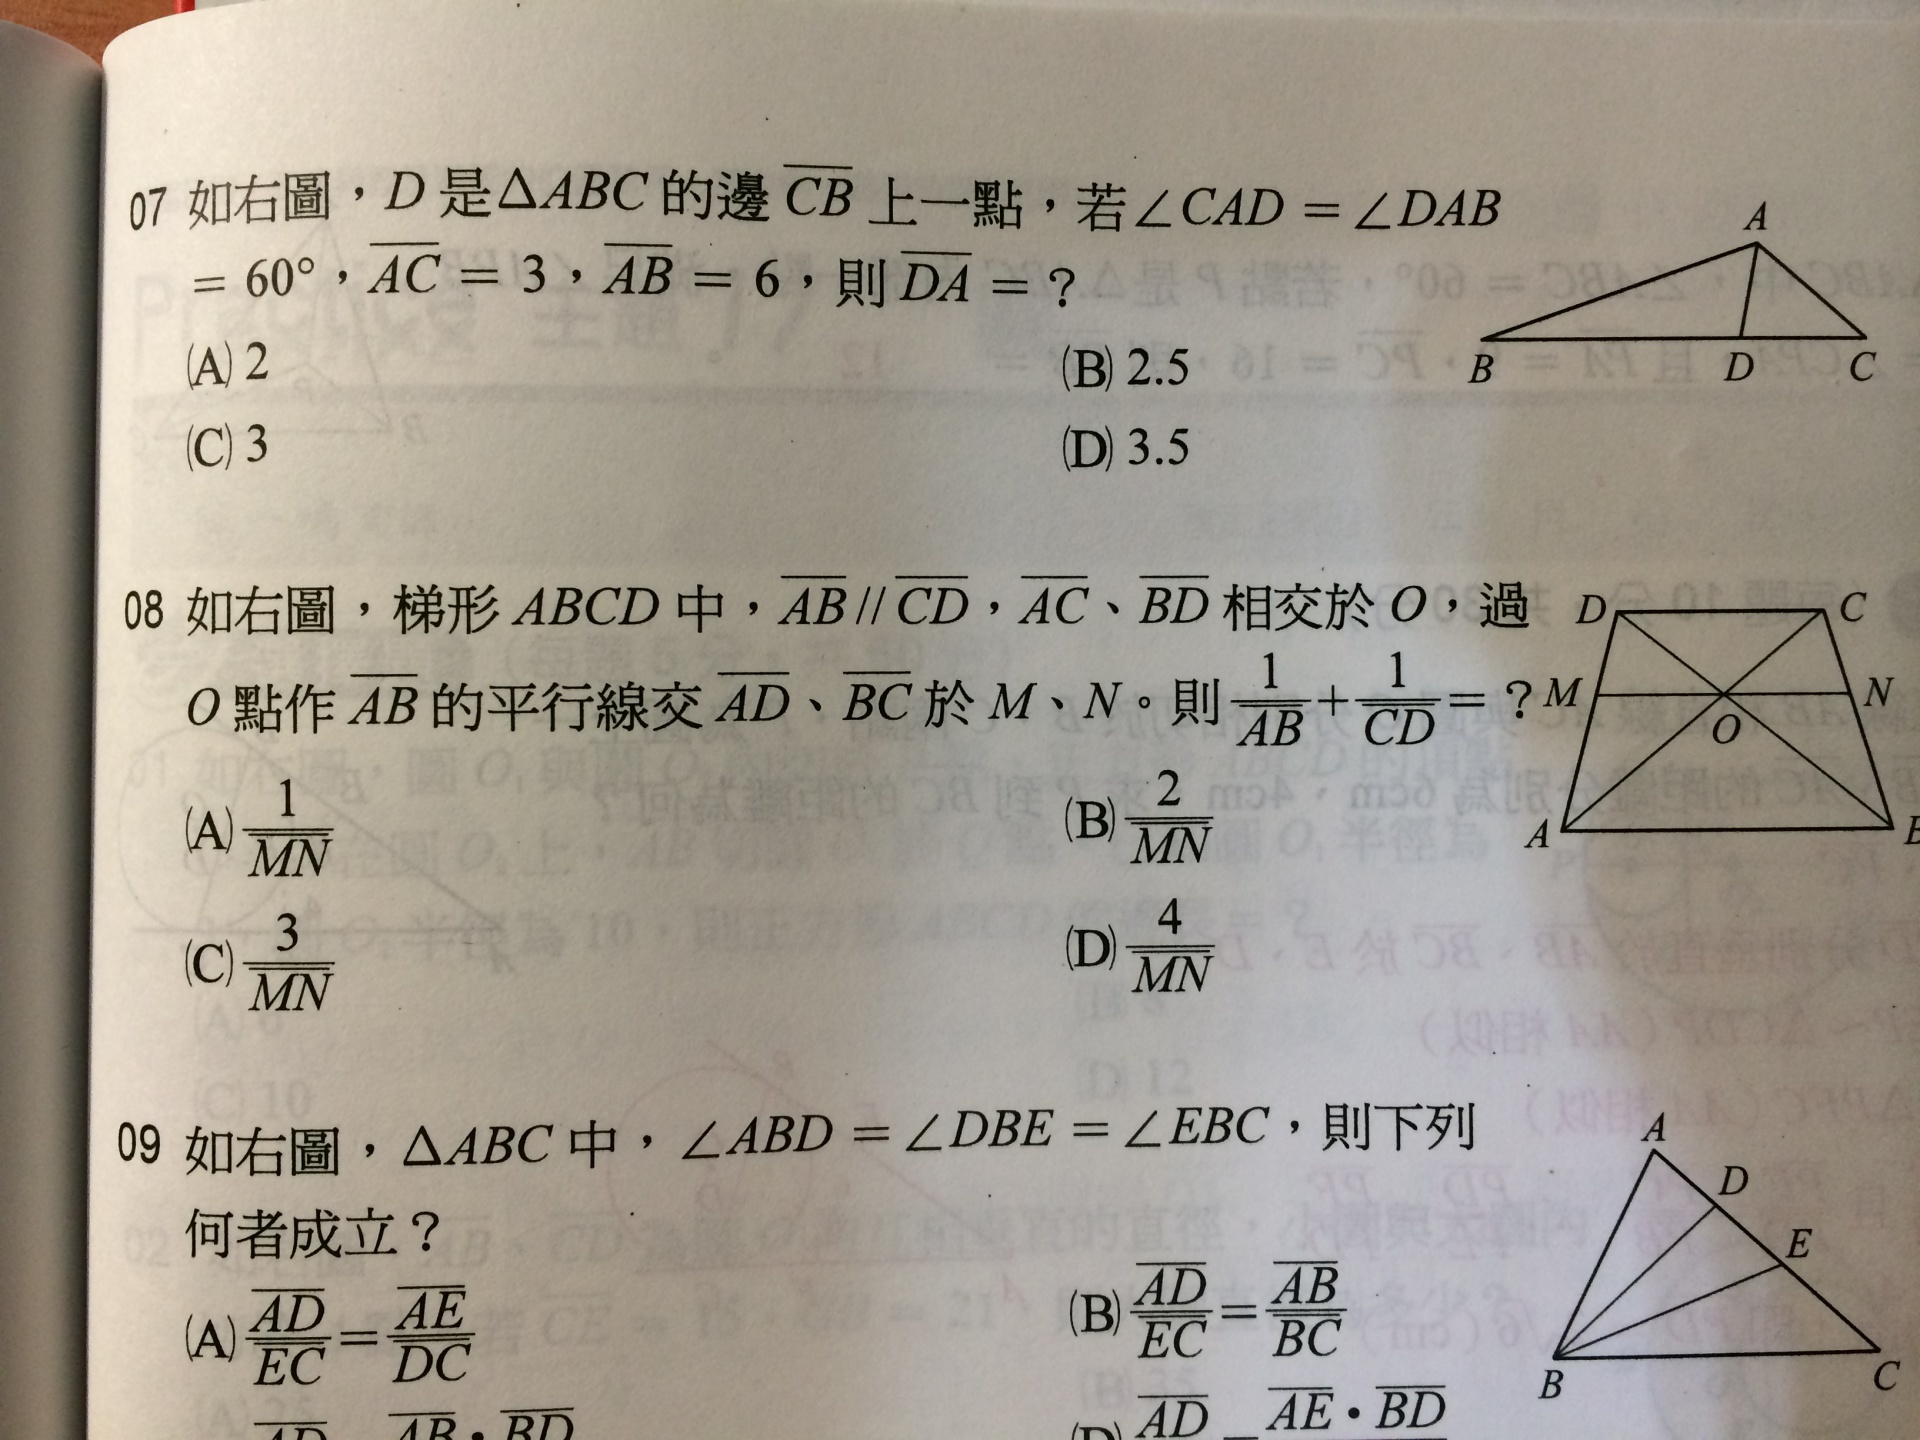 07 如右圖，D 是△ABC 的邊 CB 上一點，若∠CAD = ∠DAB
= 60°，AC = 3，AB = 6，則 DA = ？
(A) 2 (B) 2.5
(C) 3 (D) 3.5
A
B D C
08 如右圖，梯形 ABCD 中，AB // CD，AC、BD 相交於 O，過
O 點作 AB 的平行線交 AD、BC 於 M、N。則 1/AB + 1/CD = ？
(A) 1/MN (B) 2/MN
(C) 3/MN (D) 4/MN
D C
M N
O
A B
09 如右圖，△ABC 中，∠ABD = ∠DBE = ∠EBC，則下列
何者成立？
(A) AD/EC = AE/DC (B) AD/EC = AB/BC
AD AB • BD (D) AD AE • BD
A
D
E
B C